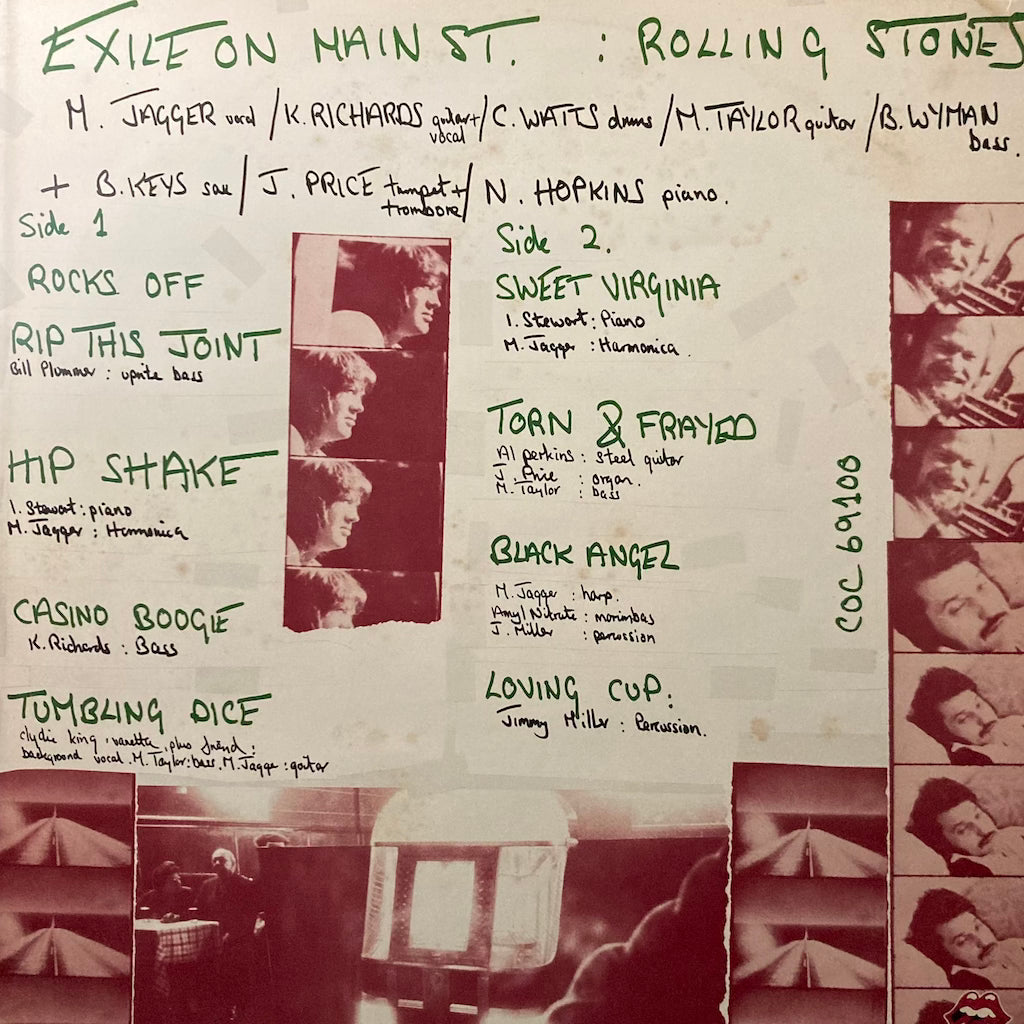 EXILE ON MAIN ST. : ROLLING STONES
M. JAGGER vocal / K. RICHARDS guitar + vocal / C. WATTS drums / M. TAYLOR guitar / B. WYMAN bass.
+ B. KEYS sax / J. PRICE trumpet + trombone / N. HOPKINS piano.
Side 1
ROCKS OFF
RIP THIS JOINT
Bill Plummer : uprite bass
HIP SHAKE
I. Stewart : piano
M. Jagger : Harmonica
CASINO BOOGIE
K. Richards : Bass
TUMBLING DICE
clydie king, vanetta, plus friend :
background vocal. M. Taylor : bass. M. Jagge : guitar
Side 2.
SWEET VIRGINIA
I. Stewart : Piano
M. Jagger : Harmonica.
TORN & FRAYED
Al perkins : steel guitar
J. Price : organ.
M. Taylor : bass
BLACK ANGEL
M. Jagger : harp.
Amyl Nitrate : marimbas
J. Miller : percussion
LOVING CUP.
Jimmy Miller : Percussion.
COC 69100